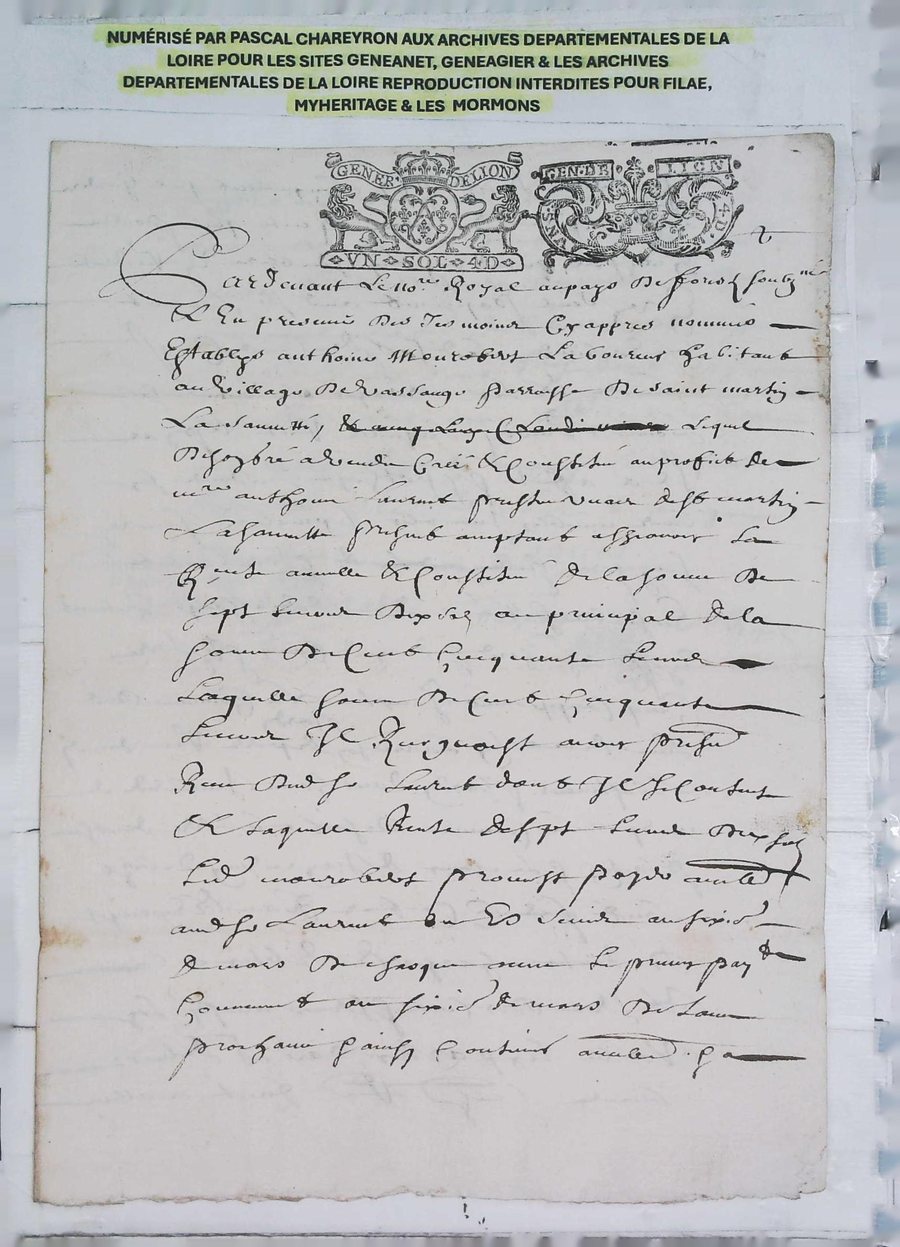 NUMÉRISÉ PAR PASCAL CHAREYRON AUX ARCHIVES DEPARTEMENTALES DE LA
LOIRE POUR LES SITES GENEANET, GENEAGIER & LES ARCHIVES
DEPARTEMENTALES DE LA LOIRE REPRODUCTION INTERDITES POUR FILAE,
MYHERITAGE & LES MORMONS
GENER· DELION
VN SOL 4D
GEN·DE LION
VN S 4 D
Pardevant Le no.re Royal au pays De fforest soubzné
& En presence Des Tesmoins Cy appres nommés
Establys anthoine Mourobert Laboureur habitant
au Village De parroisse De saint martin
La sauvetté, Lequel
De son gré a vendu Créé & Constitué au proffit de
m.re anthoine Laurent prestre vicaire de st martin
La sauvetté present acceptant assavoir La
Rente annuelle & Constitué de la somme De
sept Livres Dix solz au principal de la
somme De Cent Cinquante Livres
Laquelle somme De Cent Cinquante
Livres Il Recognoist avoir
Receu Dud sr Laurent dont Il se Contente
& Laquelle Rente de sept Livres Dix solz
Led mourobert promest payer
aud sr Laurent ou Es siens au sixie
de mars De chaque annee Le premier pay de
Commencant au sixie de mars De Lannee
prochaine & ainsy Continuer